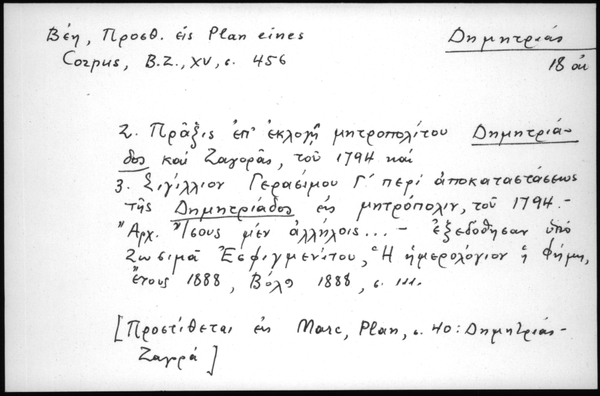 Βέη, Προσθ. εἰς Plan eines
Corpus, B.Z., XV, σ. 456
Δημητριάς
18 αἰ
2. Πρᾶξις ἐπ' ἐκλογῇ μητροπολίτου Δημητριά-
δος καὶ Ζαγορᾶς, τοῦ 1794 καὶ
3. Σιγίλλιον Γερασίμου Γ' περὶ ἀποκαταστάσεως
τῆς Δημητριάδος εἰς μητρόπολιν, τοῦ 1794.-
"Ἀρχ. "Ἴσους μὲν ἀλλήλοις... - ἐξεδόθησαν ὑπὸ
Ζωσιμᾶ Ἐσφιγμενίτου, Ἡ ἡμερολόγιον ἡ Φήμη,
ἔτους 1888, Βόλῳ 1888, σ. 111.
[Προστίθεται εἰς Marc, Plan, σ. 40: Δημητριάς-
Ζαγορά]